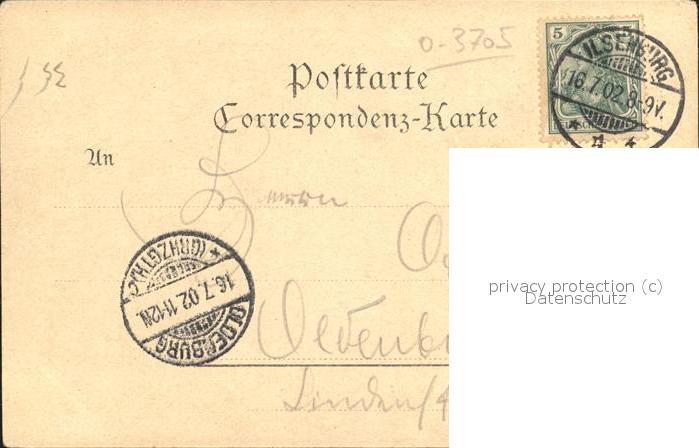 o-3705
Postkarte
Correspondenz-Karte
An
5
ILSENBURG
16.7.02.8-9V.
OLDENBURG
16.7.02.11-12N.
(GRHZGTH.)
Oldenbu
Linden
privacy protection (c)
Datenschutz